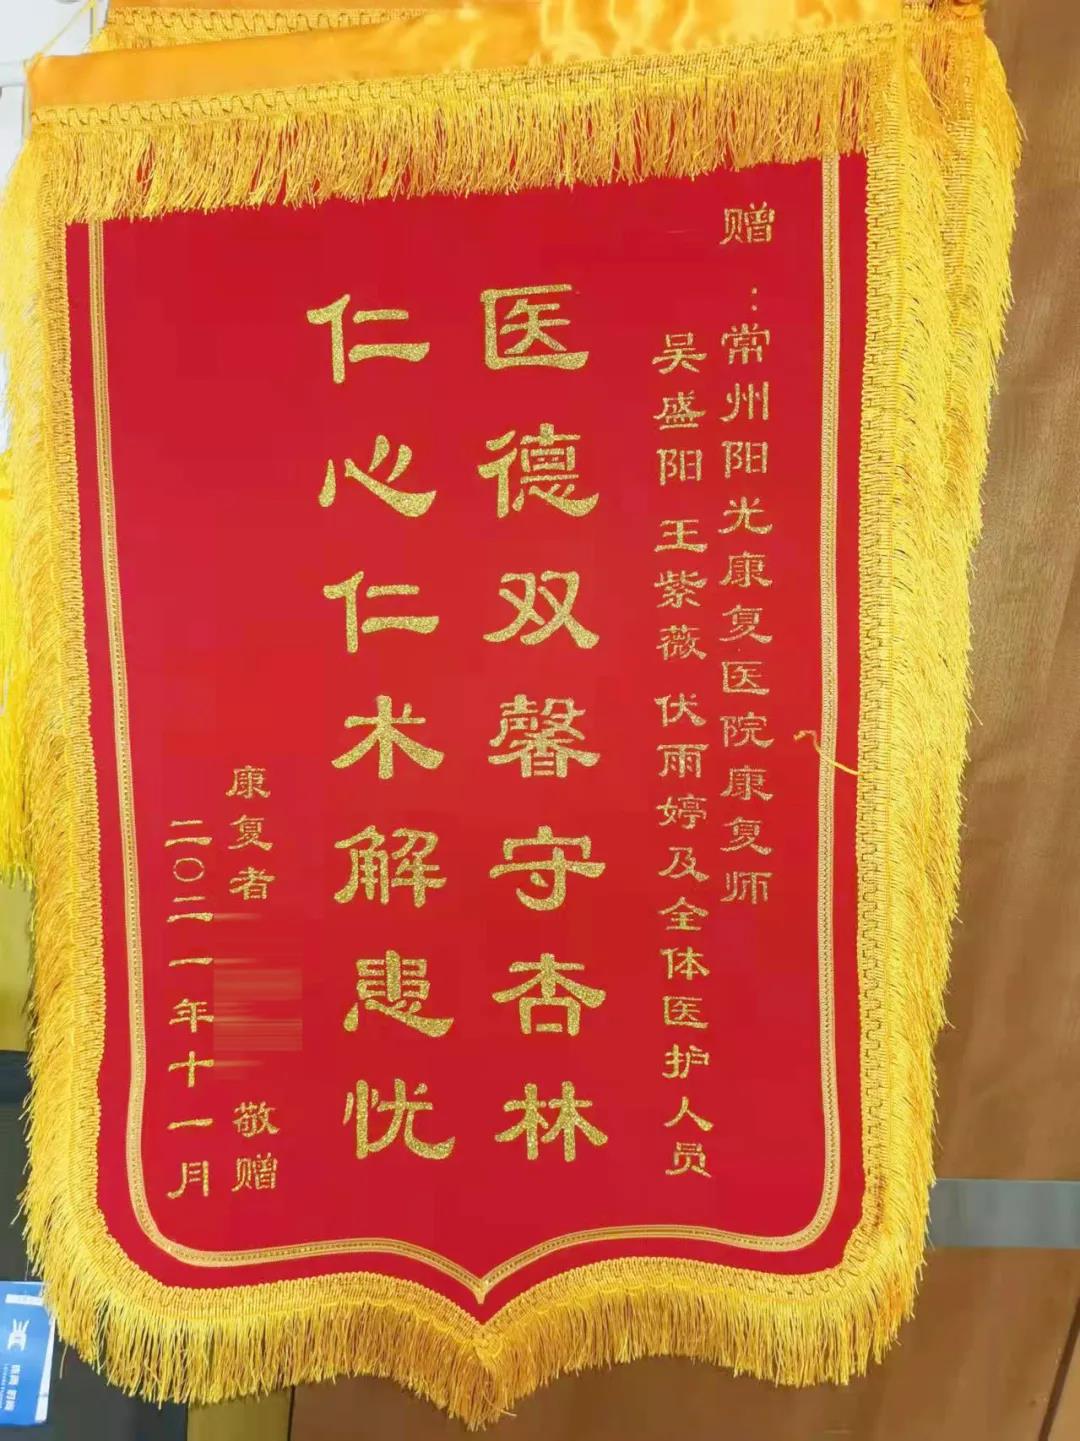 赠：常州阳光康复医院康复师
吴盛阳 王紫薇 伏雨婷及全体医护人员
医德双馨守杏林
仁心仁术解患忧
康复者 敬赠
二〇二一年十一月